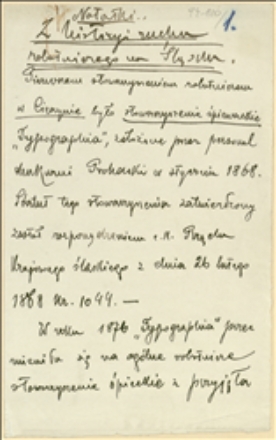 Notatki.
1.
Z historyi ruchu
robotniczego na Śląsku.
Pierwszem stowarzyszeniem robotniczem
w Cieszynie było stowarzyszenie śpiewackie
„Typographia", założone przez personal
drukarni Prohaski w styczniu 1868.
Statut tego stowarzyszenia zatwierdzony
został rozporządzeniem c. k. Rządu
Krajowego śląskiego z dnia 26 lutego
1868 Nr. 1044. —
W roku 1876 „Typographia" prze
mieniła się na ogólne robotnicze
stowarzyszenie śpiewackie i przyjęła